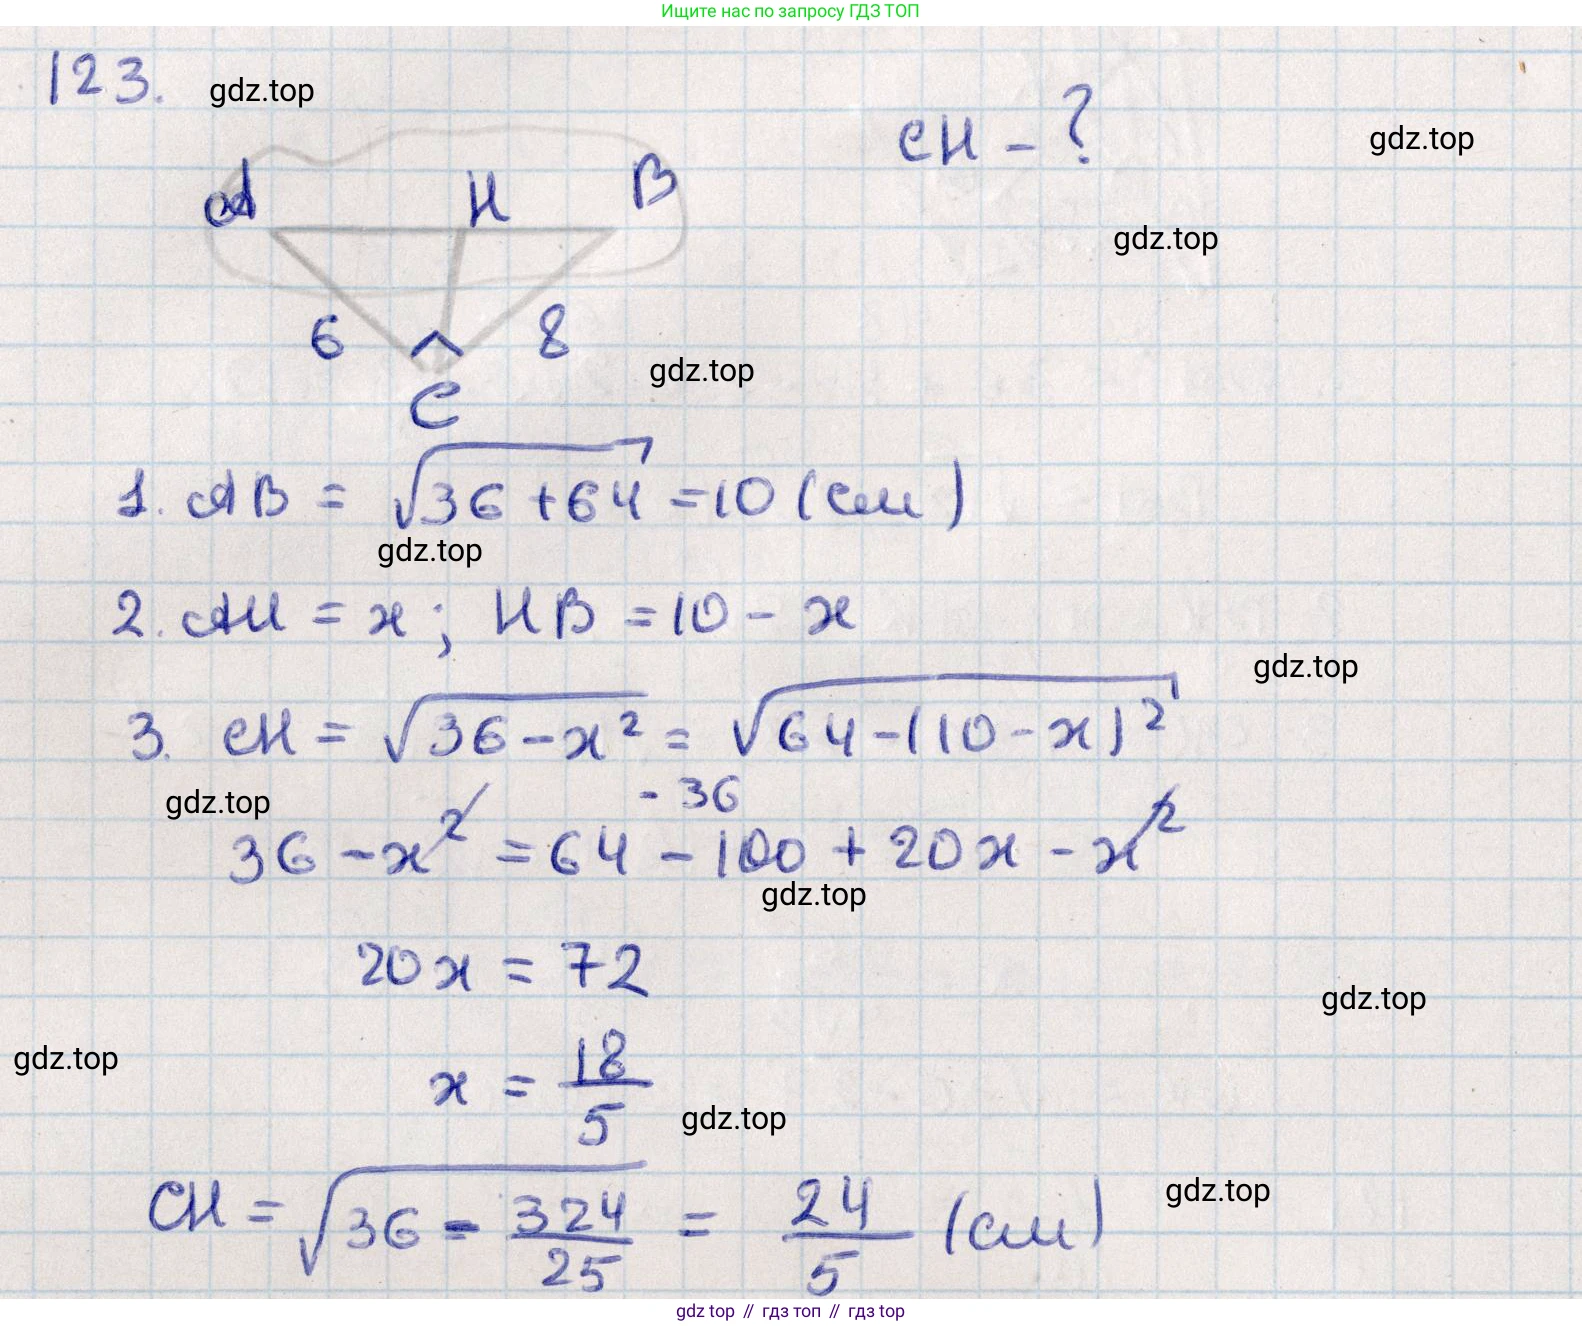 Ищите нас по запросу ГДЗ ТОП
123.
gdz.top
CH - ?
gdz.top
A H B
gdz.top
6 8
gdz.top
C
1. AB = √36 + 64 = 10 (см)
gdz.top
2. AH = x; HB = 10 - x
gdz.top
3. CH = √36 - x² = √64 - (10 - x)²
gdz.top
- 36
36 - x² = 64 - 100 + 20x - x²
gdz.top
20x = 72
gdz.top
gdz.top
x = 18/5
gdz.top
gdz.top
CH = √36 - 324/25 = 24/5 (см)
gdz top // гдз топ // гдз top